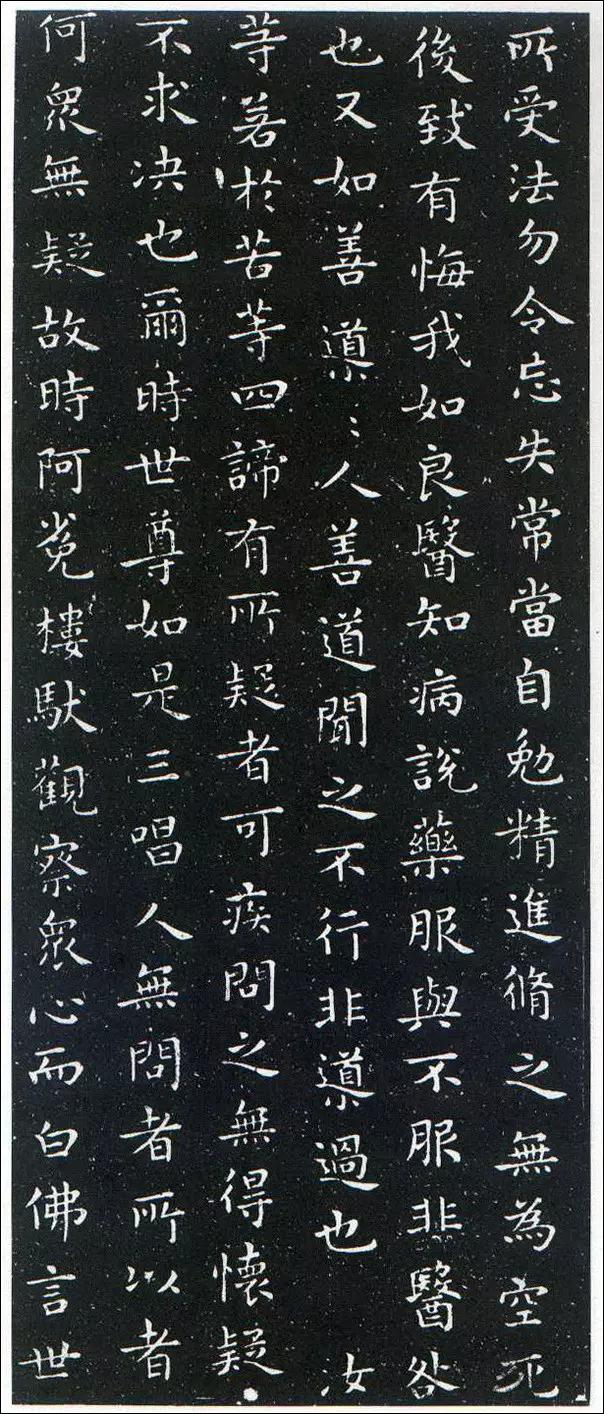 所受法勿令忘失常當自勉精進脩之無為空死
後致有悔我如良醫知病說藥服與不服非醫咎
也又如善導〻人善道聞之不行非導過也 汝
等若於苦等四諦有所疑者可疾問之無得懷疑
不求决也爾時世尊如是三唱人無問者所以者
何衆無疑故時阿㝹樓馱觀察衆心而白佛言世